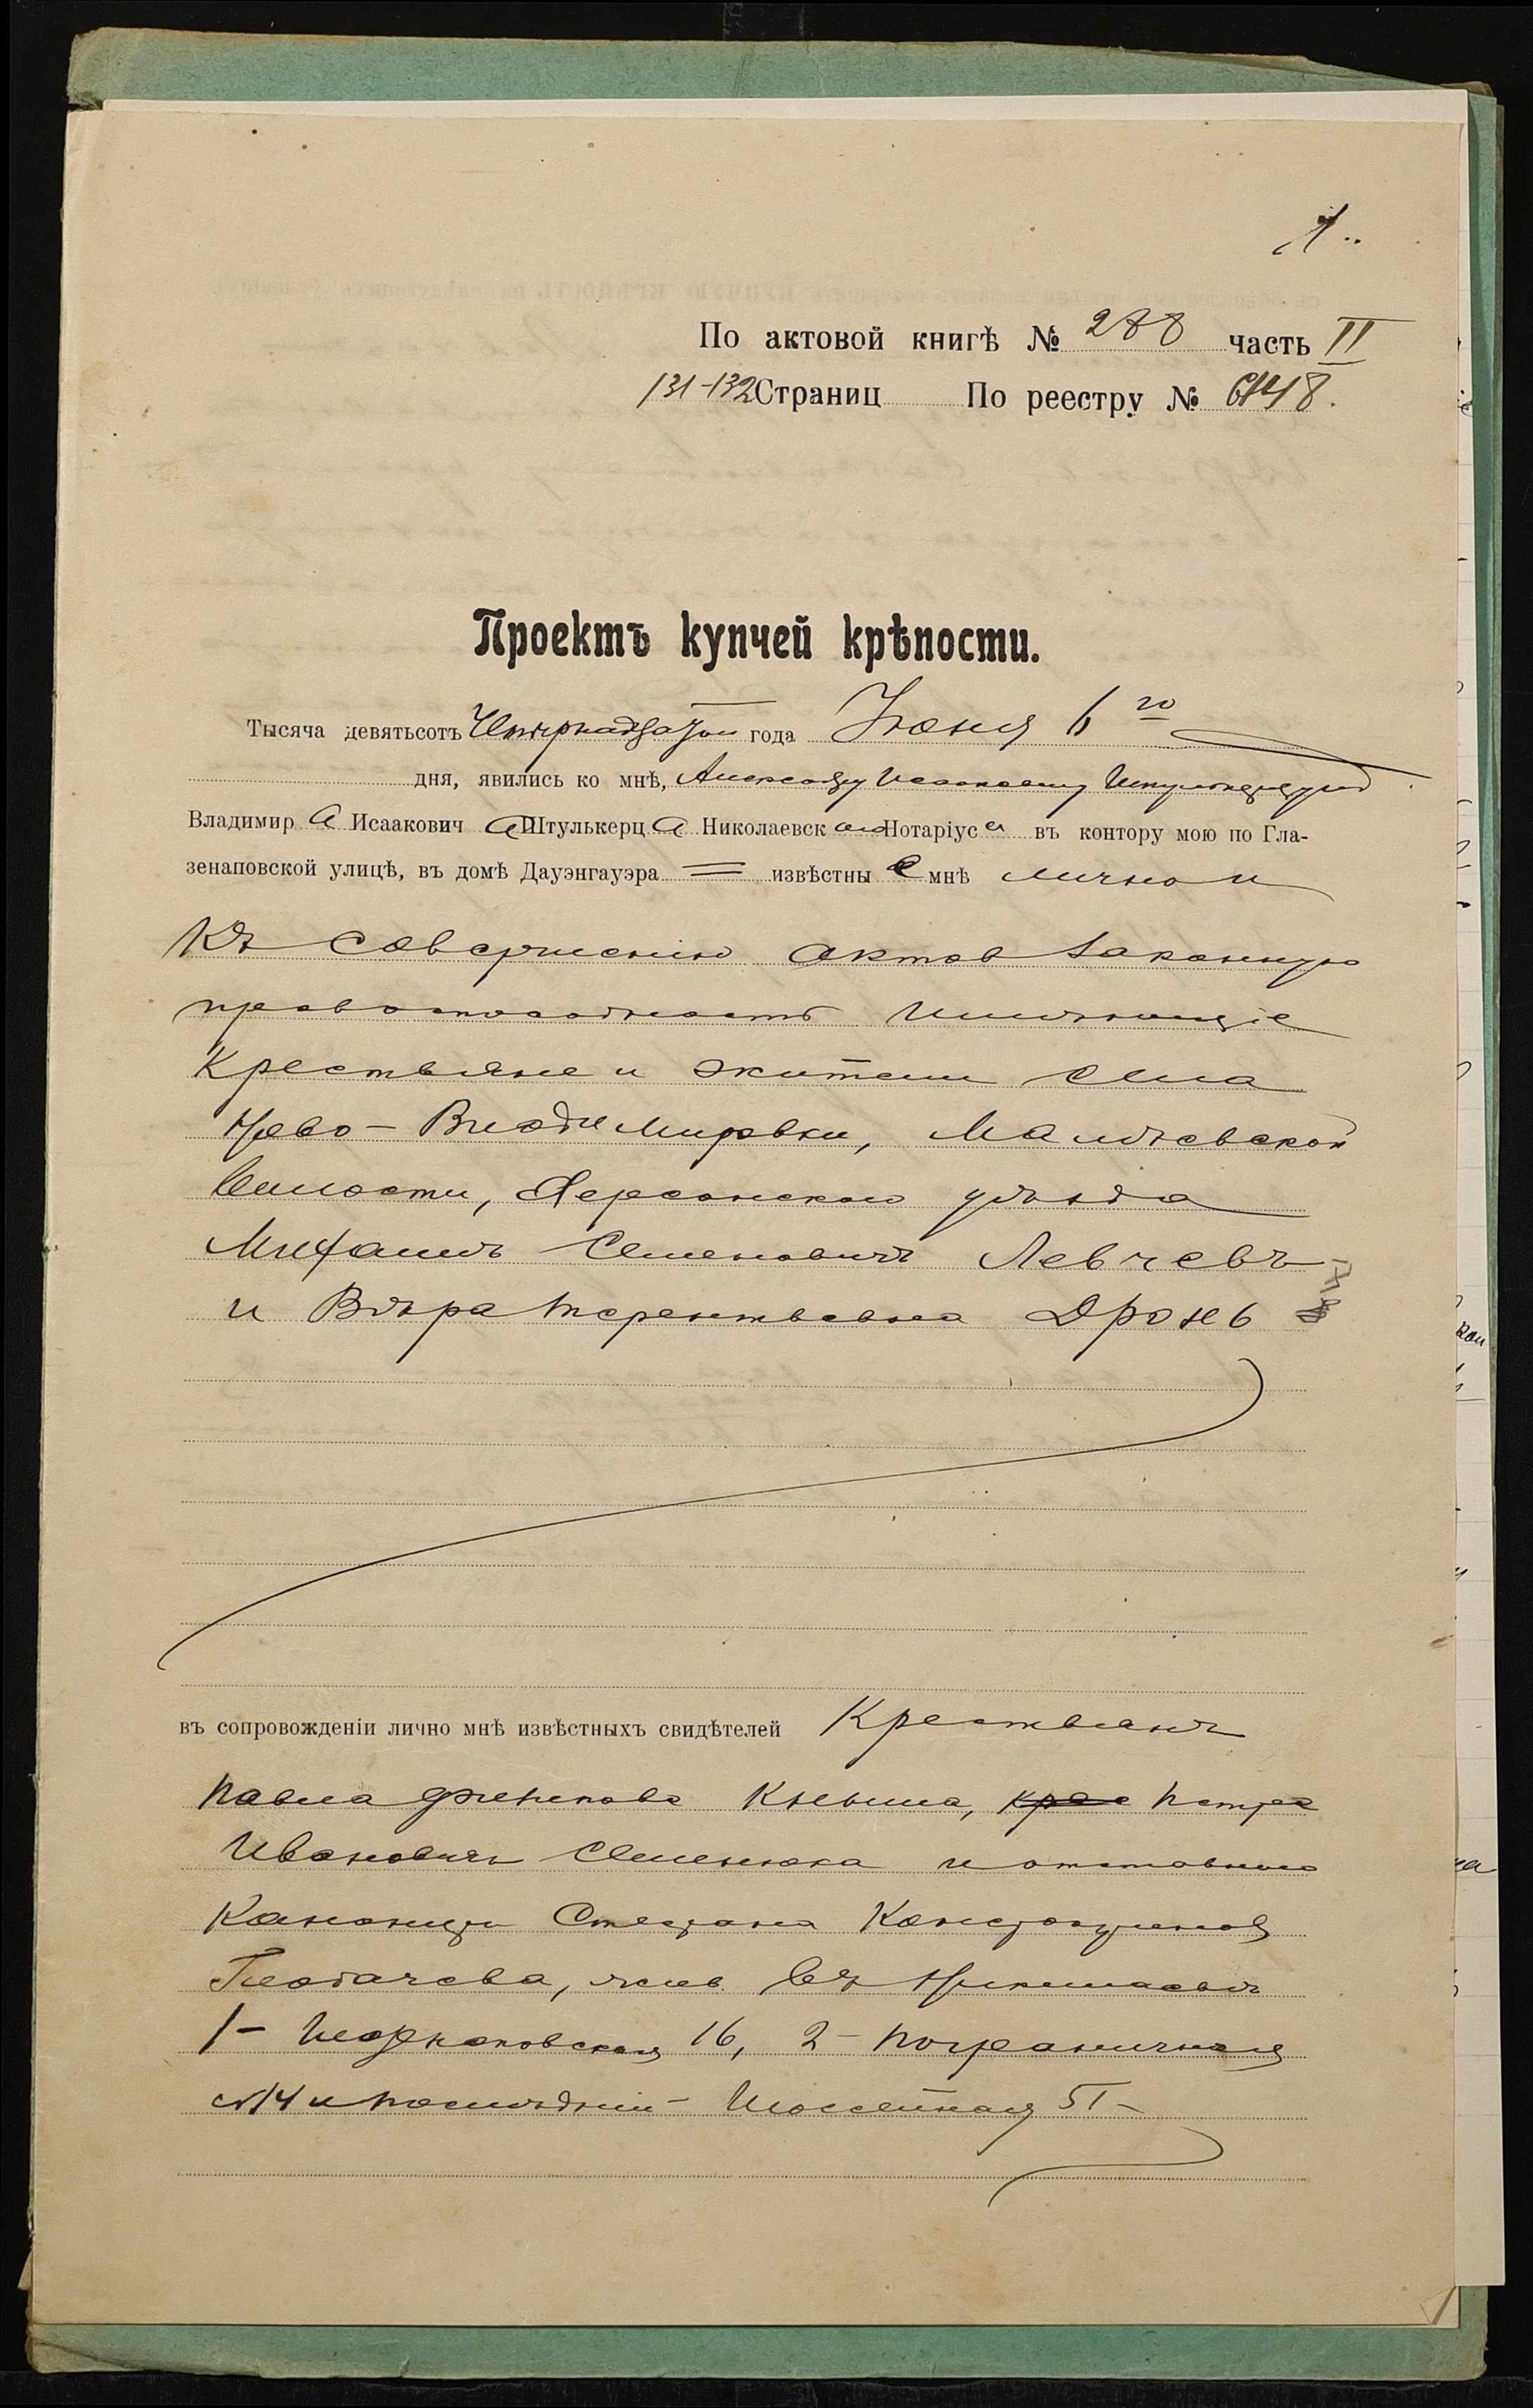 1
По актовой книгѣ № 288 часть II
131-132 Страниц По реестру № 6148.
Проектъ купчей крѣпости.
Тысяча девятьсотъ Четырнадцатаго года Іюня 6 го
дня, явились ко мнѣ, Александру Исааковичу Штулькерцу
Владимир а Исаакович а Штулькерц а Николаевск аго Нотаріус а въ контору мою по Гла-
зенаповской улицѣ, въ домѣ Дауэнгауэра извѣстны е мнѣ лично и
къ совершенію актов законную
правоспособность имѣющіе
Крестьяне и жители села
Ново-Владимировки, Малѣевской
волости, Херсонскаго уѣзда
Михаилъ Семеновичъ Левчевъ
и Вѣра Терентьевна Дронь
въ сопровожденіи лично мнѣ извѣстныхъ свидѣтелей Крестьянъ
Павла Петра
Ивановича Семенюка и отставного
Канонира Стефана
въ Николаевѣ
1- 16, 2- Пограничная
№14 и послѣдній- Шоссейная 51-